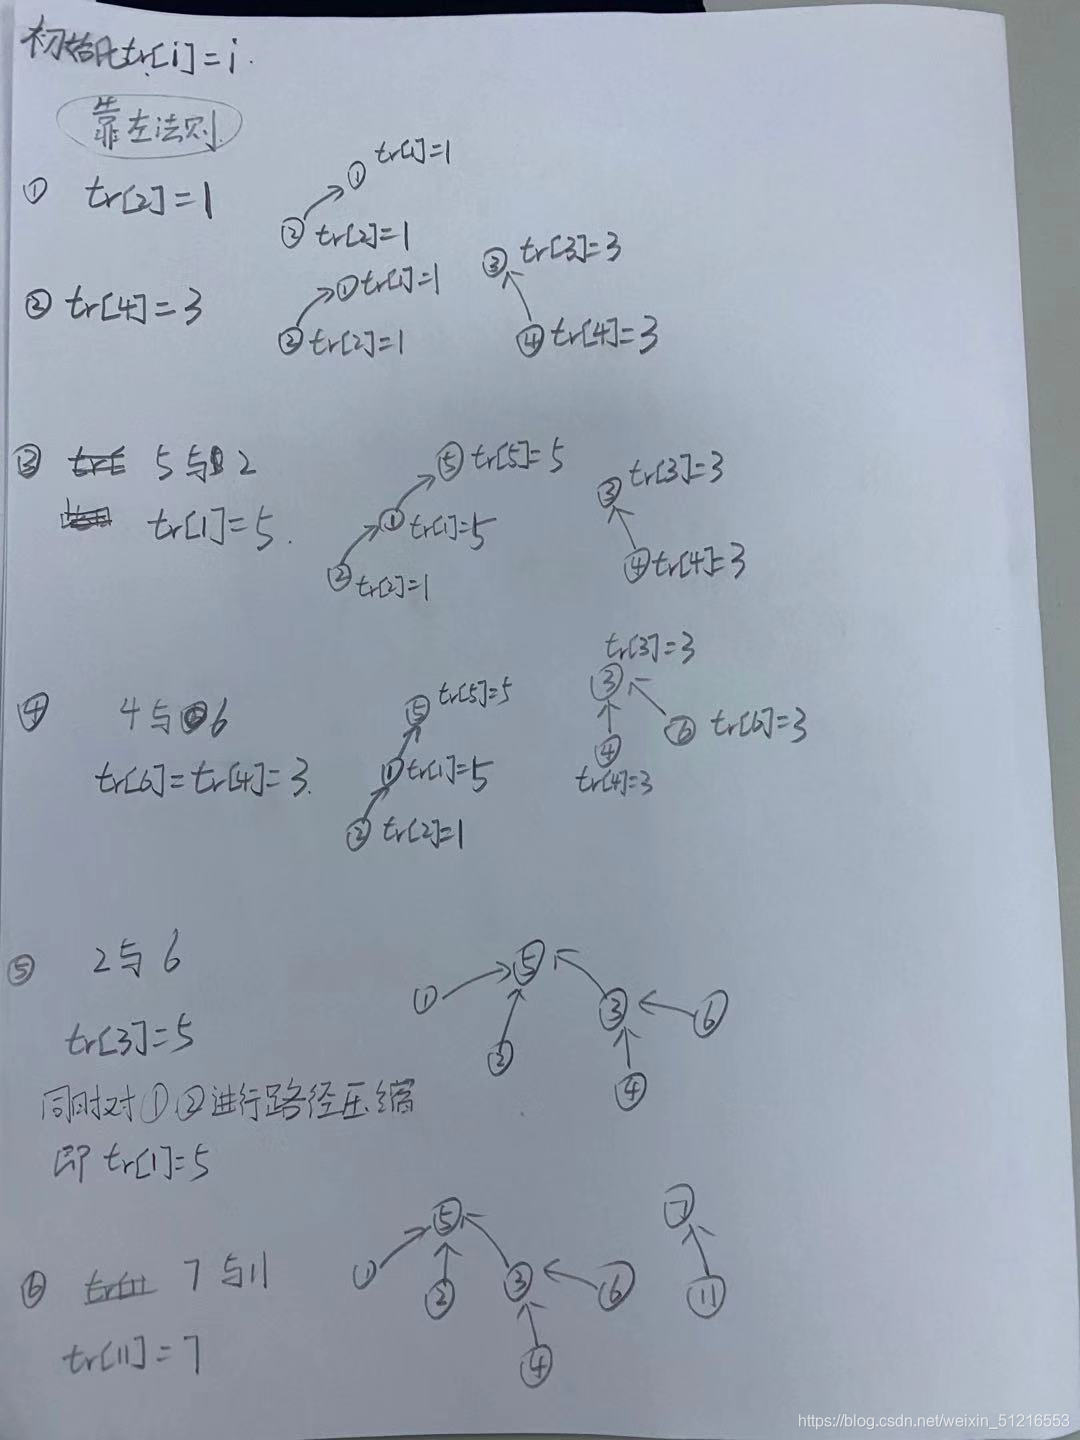 初始化tr[i]=i.
靠左法则.
① tr[2]=1
① tr[1]=1
② tr[2]=1
② tr[4]=3
① tr[1]=1
② tr[2]=1
③ tr[3]=3
④ tr[4]=3
③ 5与2
tr[1]=5.
⑤ tr[5]=5
① tr[1]=5
② tr[2]=1
③ tr[3]=3
④ tr[4]=3
④ 4与6
tr[6]=tr[4]=3.
⑤ tr[5]=5
① tr[1]=5
② tr[2]=1
tr[3]=3
③
④
tr[4]=3
⑥ tr[6]=3
⑤ 2与6
tr[3]=5
同时对①②进行路径压缩
即 tr[1]=5
⑤
① ③ ⑥
② ④
⑥ 7与11
tr[11]=7
⑤ ⑦
① ② ③ ⑥ ⑪
④
https://blog.csdn.net/weixin_51216553